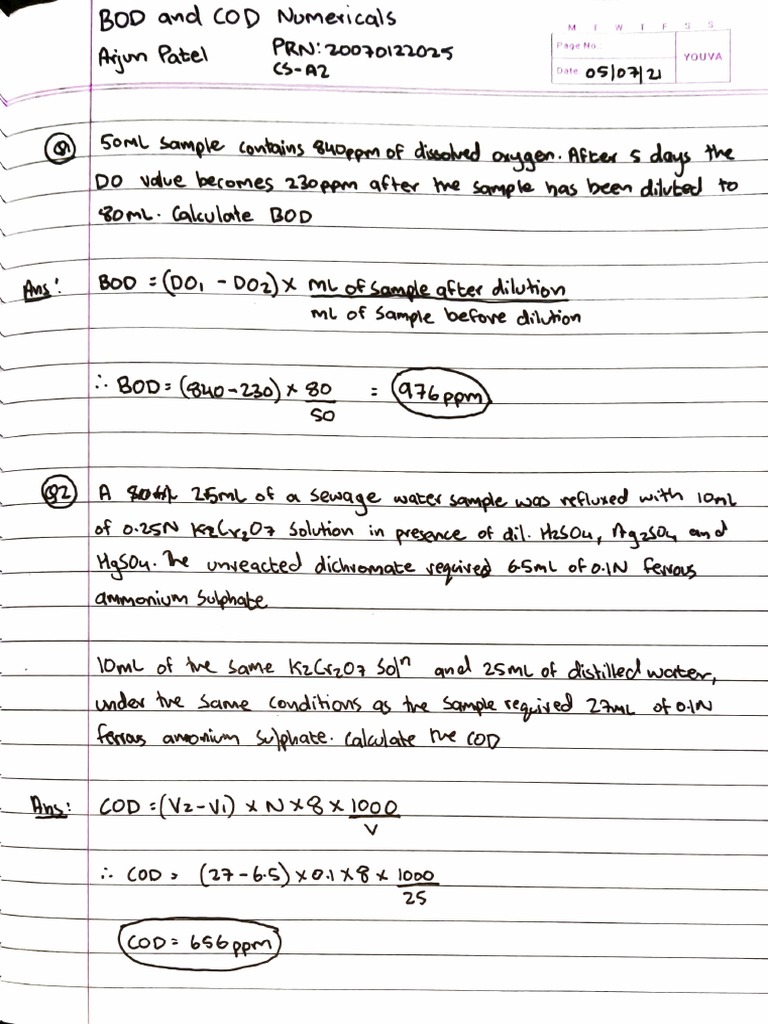 BOD and COD Numericals
Arjun Patel PRN: 20070122025
CS-A2
M T W T F S S
Page No.:
Date: 05/07/21
YOUVA
Q1 50mL sample contains 840ppm of dissolved oxygen. After 5 days the
DO value becomes 230ppm after the sample has been diluted to
80mL. Calculate BOD
Ans: BOD = (DO1 - DO2) × mL of sample after dilution
mL of sample before dilution
∴ BOD = (840-230) × 80 = 976ppm
50
Q2 A 25mL of a sewage water sample was refluxed with 10mL
of 0.25N K2Cr2O7 solution in presence of dil. H2SO4, Ag2SO4 and
HgSO4. The unreacted dichromate required 6.5mL of 0.1N ferrous
ammonium sulphate
10mL of the same K2Cr2O7 Solⁿ and 25mL of distilled water,
under the same conditions as the sample required 27mL of 0.1N
ferrous ammonium sulphate. Calculate the COD
Ans: COD = (V2-V1) × N × 8 × 1000
V
∴ COD = (27-6.5) × 0.1 × 8 × 1000
25
COD = 656ppm